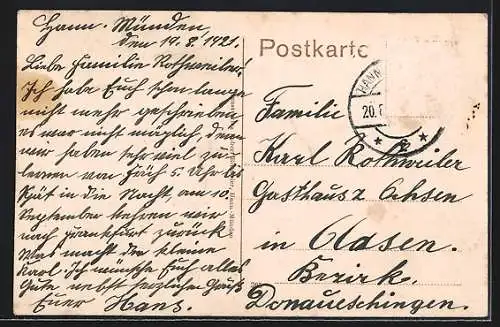 Hann. Münden
den 19.8.1921.
Liebe Familie Rothweiler!
Ich habe Euch schon lange
nicht mehr geschrieben
es war nicht möglich, denn
wir haben sehr viel zu
lernen von früh 5 Uhr bis
spät in die Nacht, am 10.
September kehren wir
nach Frankfurt zurück
Was macht der kleine
Karl. Ich wünsche Euch alles
Gute nebst herzlichen Grüß
Euer Hans.
Postkarte
HANN
20.
Familie
Karl Rothweiler
Gasthaus z Ochsen
in Aasen.
Bezirk
Donaueschingen.